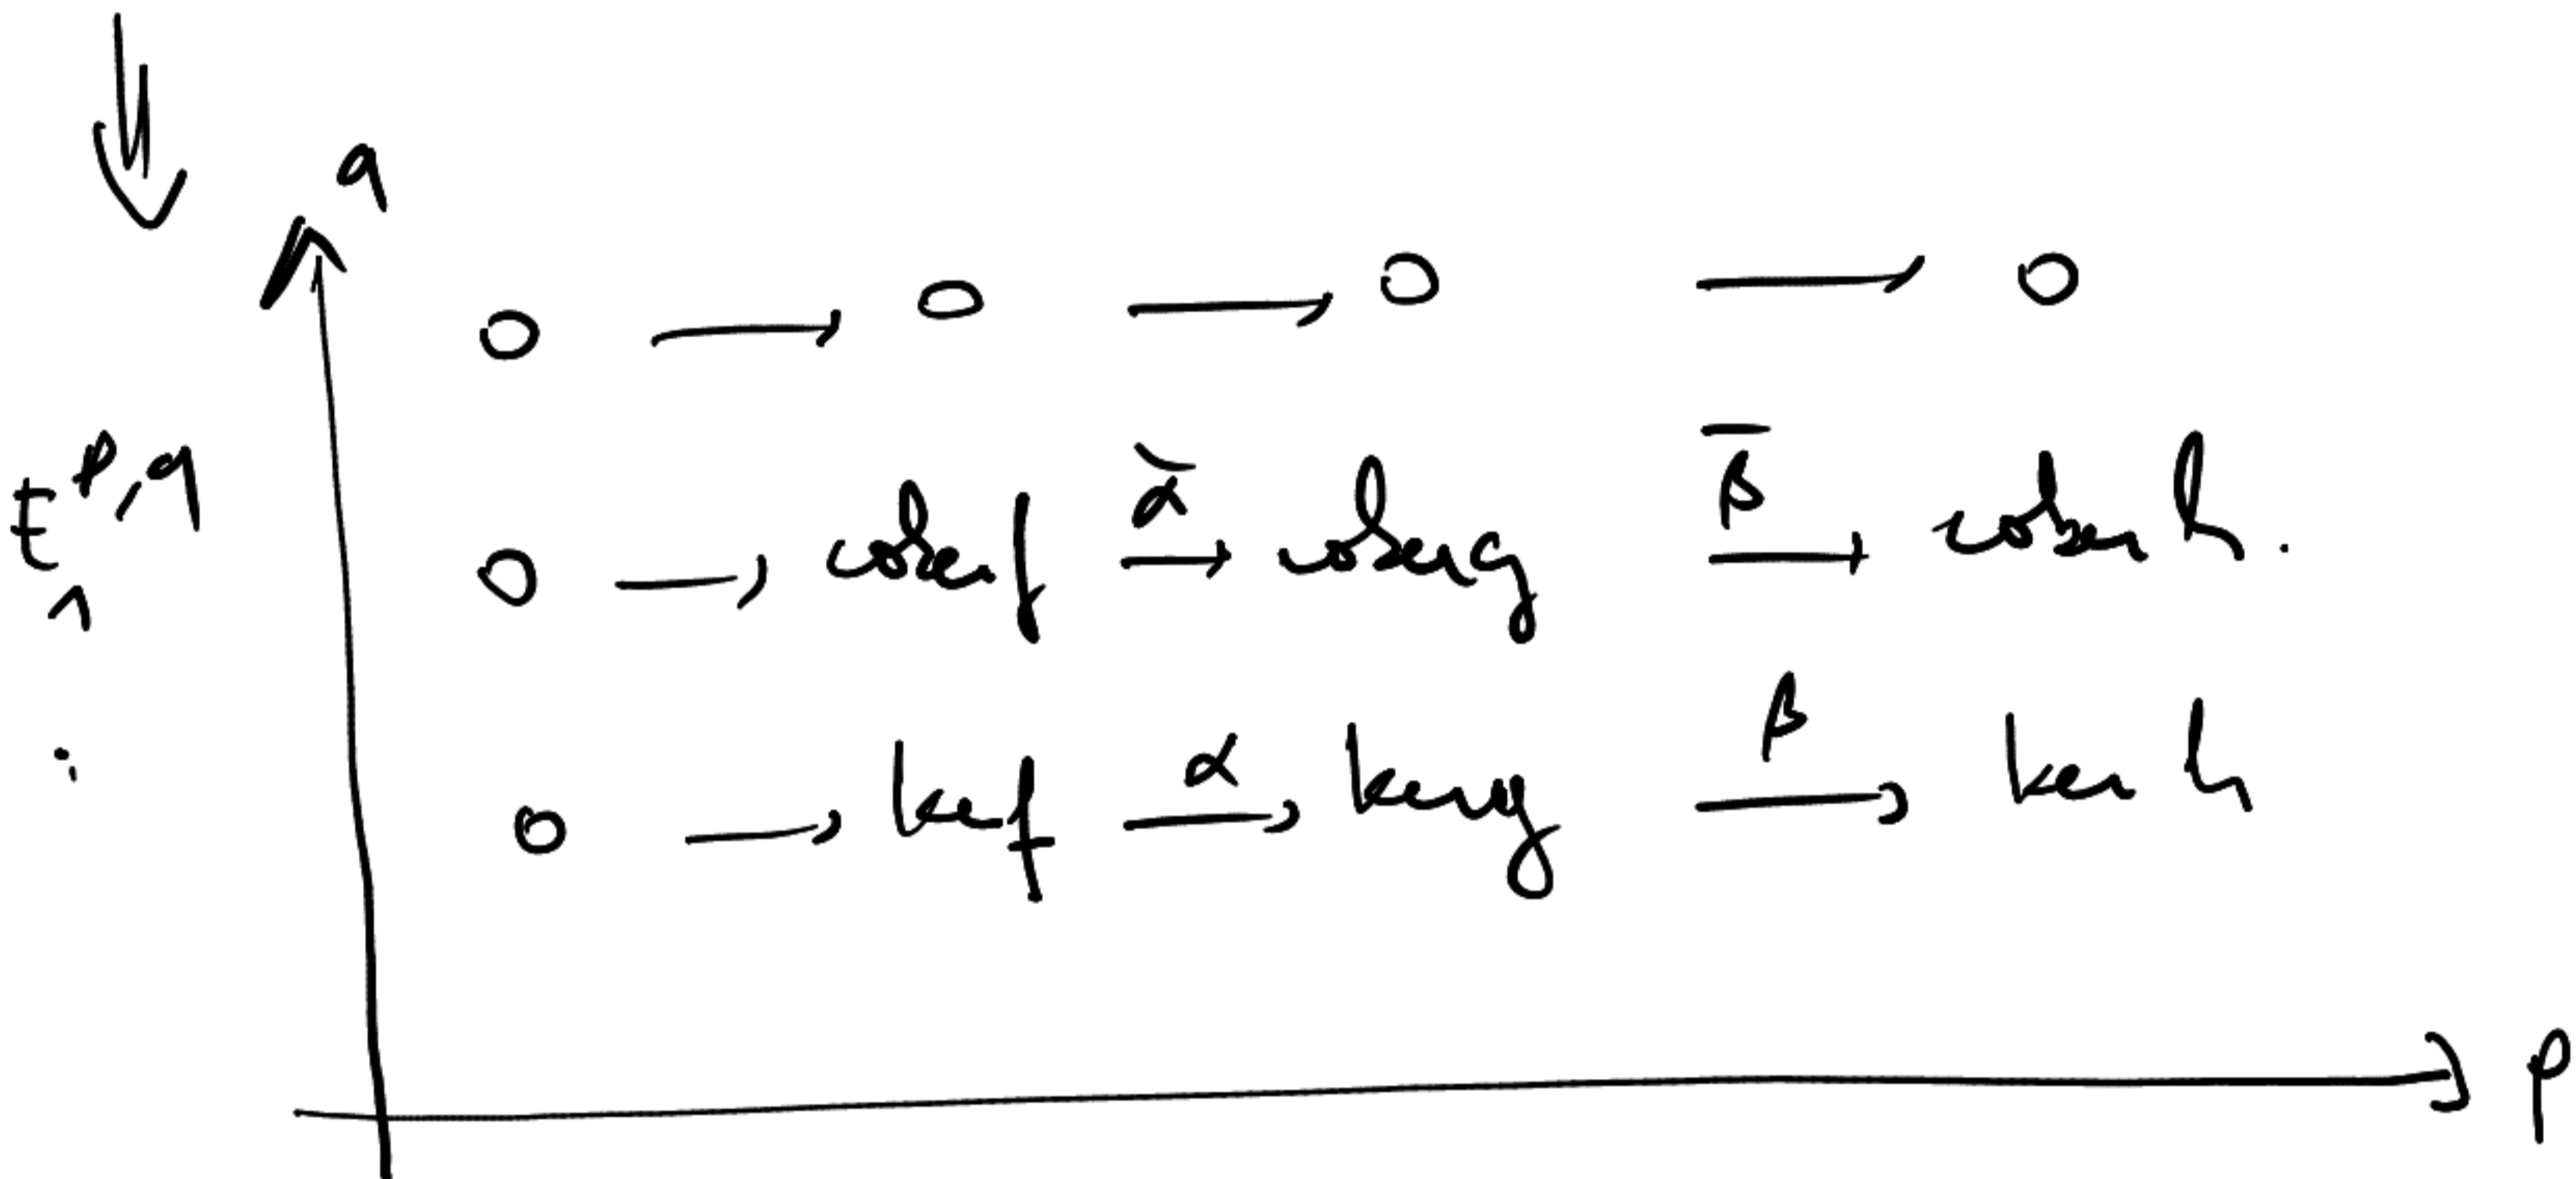 q
0 → 0 → 0 → 0
E₁^{p,q} 0 → coker f \xrightarrow{\bar{α}} coker g \xrightarrow{\bar{β}} coker h.
: 0 → ker f \xrightarrow{α} ker g \xrightarrow{β} ker h
p